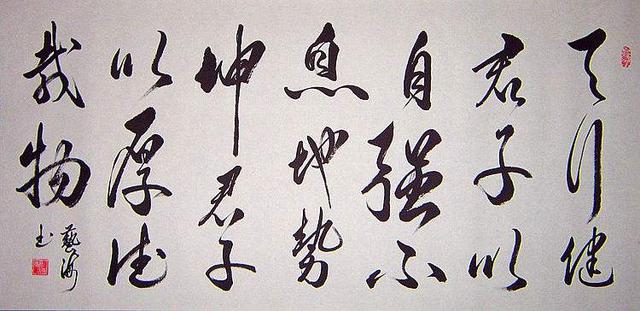 天行健
君子以
自强不
息地勢
坤君子
以厚德
载物
藝海
书